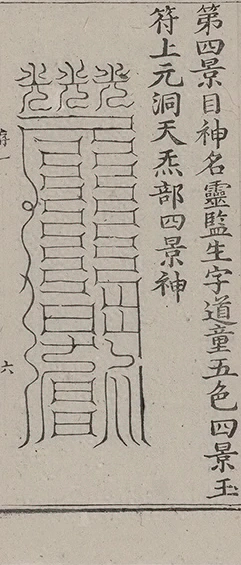 第四景目神名靈監生字道童五色四景玉
符上元洞天炁部四景神
六